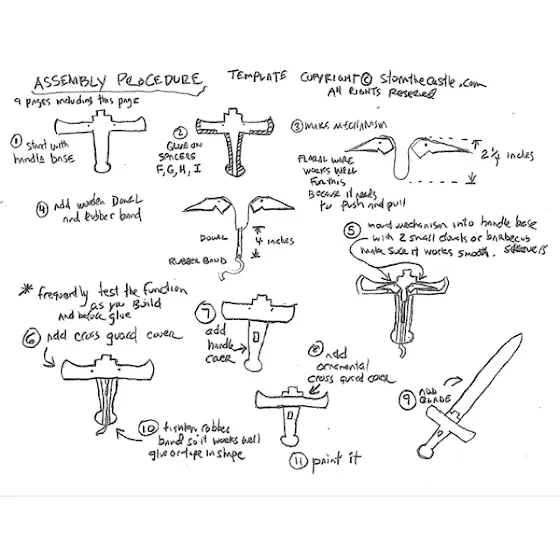 ASSEMBLY PROCEDURE
TEMPLATE COPYRIGHT © stormthecastle.com
All RIGHTS RESERVED
9 pages including this page
① start with
handle base
②
GLUE ON
SPACERS
F, G, H, I
③ MAKE MECHANISM
FLORAL WIRE
WORKS WELL
FOR THIS
BECAUSE IT NEEDS
to push and pull
2 1/4 inches
④ add wooden Dowel
and Rubber band
DOWEL
4 inches
RUBBER BAND
⑤ mount mechanism into handle base
with 2 small dowels or barbecue
skewers
make sure it works smooth.
* frequently test the function
as you Build
and before glue
⑥ add cross guard cover
⑦
add
handle
cover
⑧ add
ornamental
cross guard cover
⑨ ADD
BLADE
⑩ tighten rubber
band so it works well
glue or tape in shape
⑪ paint it